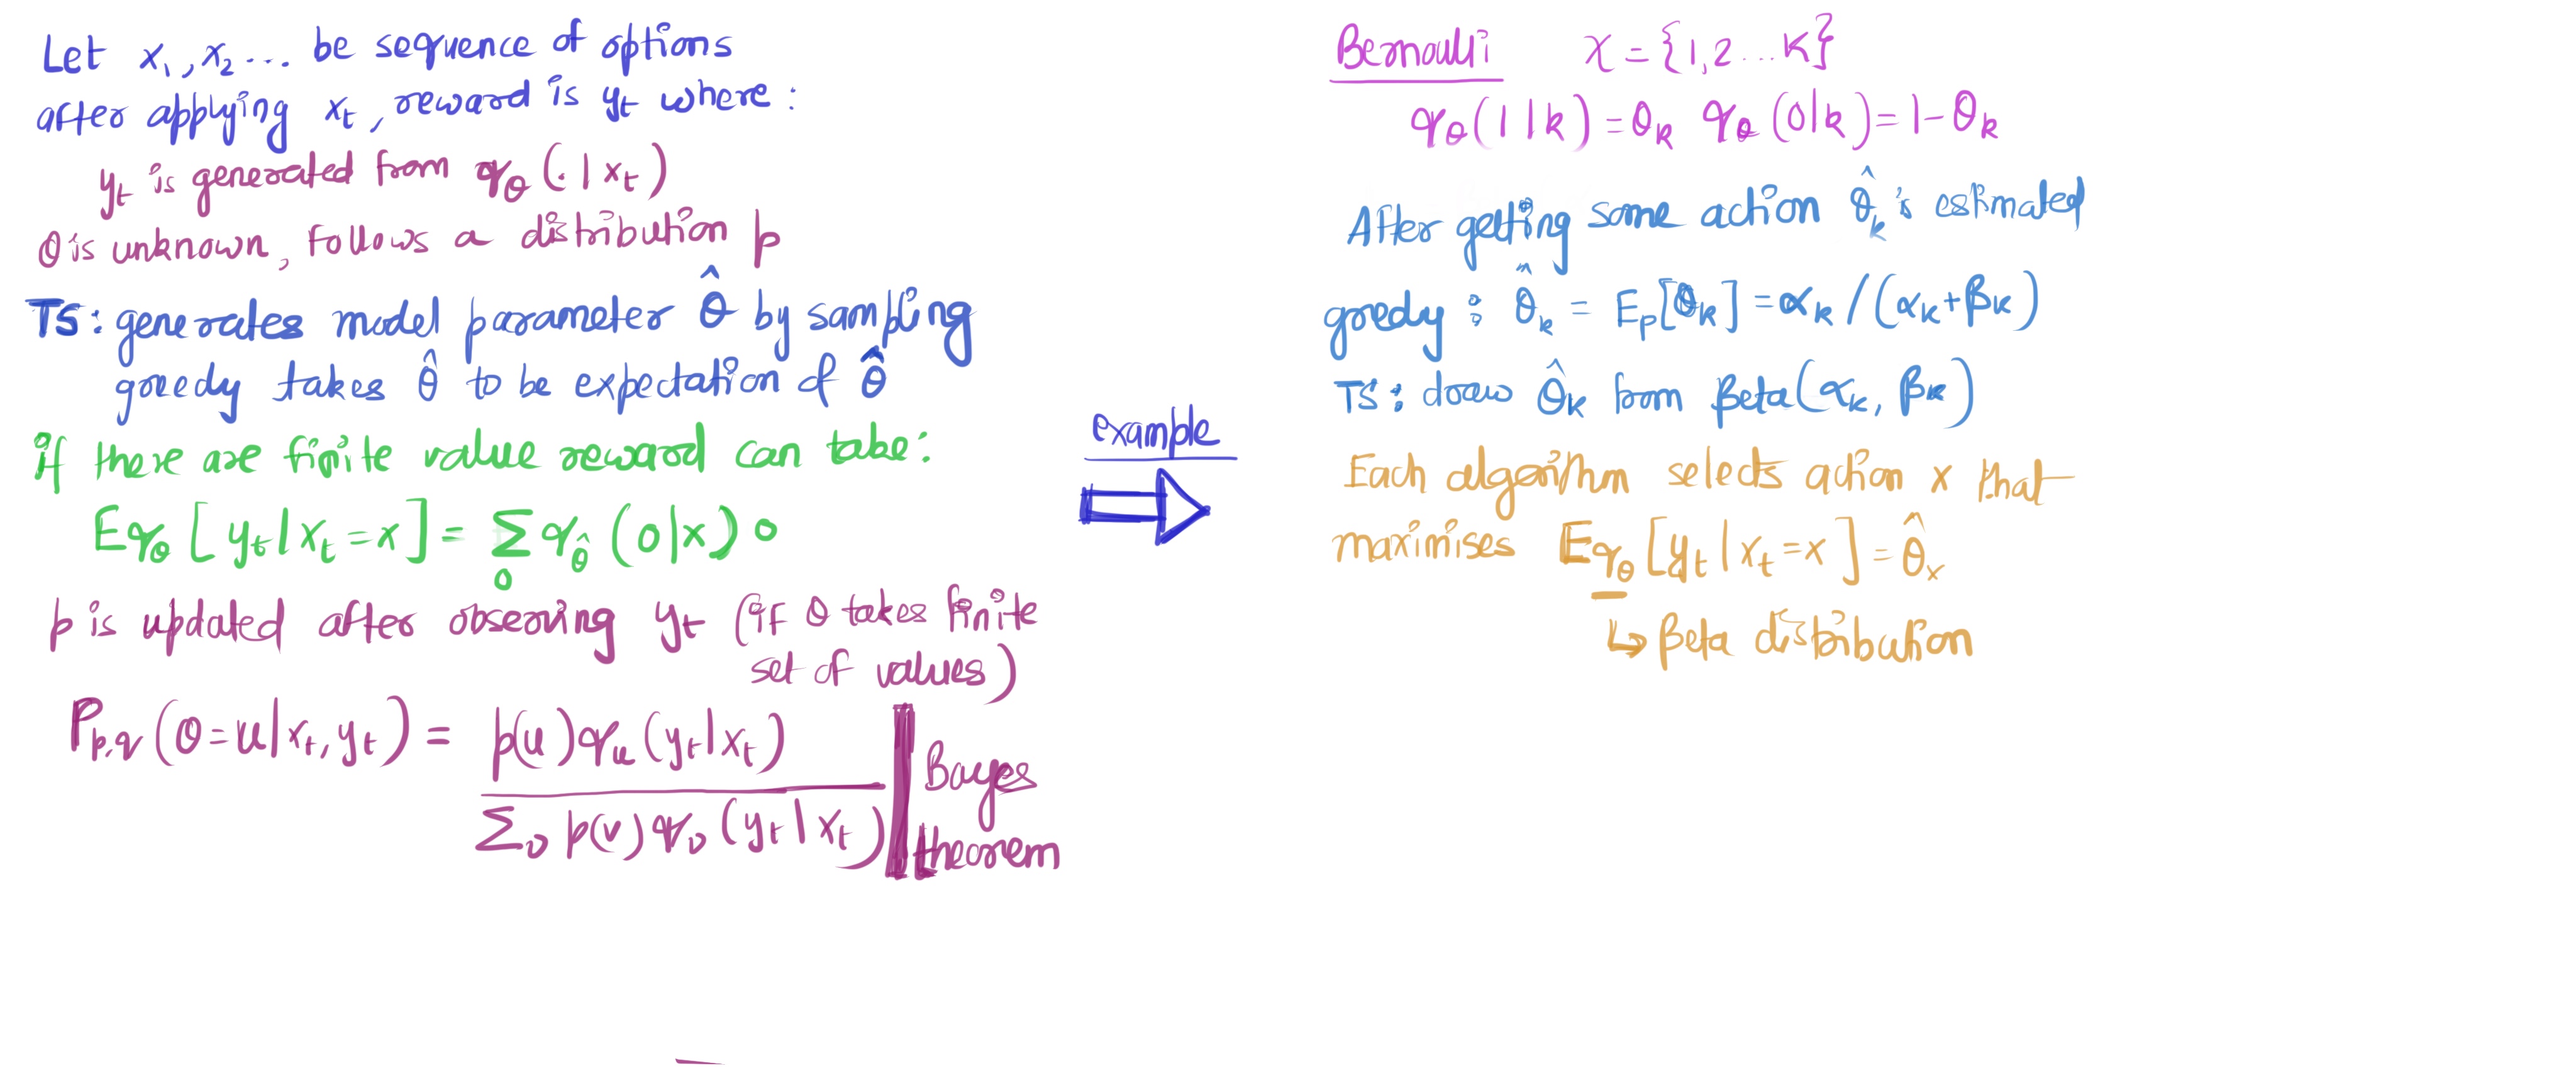 Let x₁, x₂ ... be sequence of options
after applying xₜ, reward is yₜ where:
yₜ is generated from q_θ(.|xₜ)
θ is unknown, follows a distribution p
TS: generates model parameter θ̂ by sampling
greedy takes θ̂ to be expectation of θ̂
if there are finite value reward can take:
E_{q_θ}[yₜ|xₜ=x] = Σ_o q_θ̂(o|x) o
p is updated after observing yₜ (if θ takes finite
set of values)
P_{p,q}(θ=u|xₜ,yₜ) = p(u)q_u(yₜ|xₜ)
Σ_v p(v)q_v(yₜ|xₜ)
Bayes
theorem
example
Bernoulli χ = {1,2...K}
q_θ(1|k) = θ_k q_θ(0|k) = 1-θ_k
After getting some action θ̂_k is estimated
greedy : θ̂_k = E_p[θ_k] = α_k/(α_k+β_k)
TS: draw θ̂_k from Beta(α_k, β_k)
Each algorithm selects action x that
maximises E_{q_θ}[yₜ|xₜ=x] = θ̂_x
↳ Beta distribution